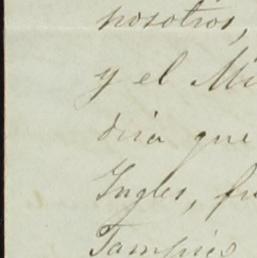 nosotros,
y el Mi
dira que
Ingles, fu
Tampico